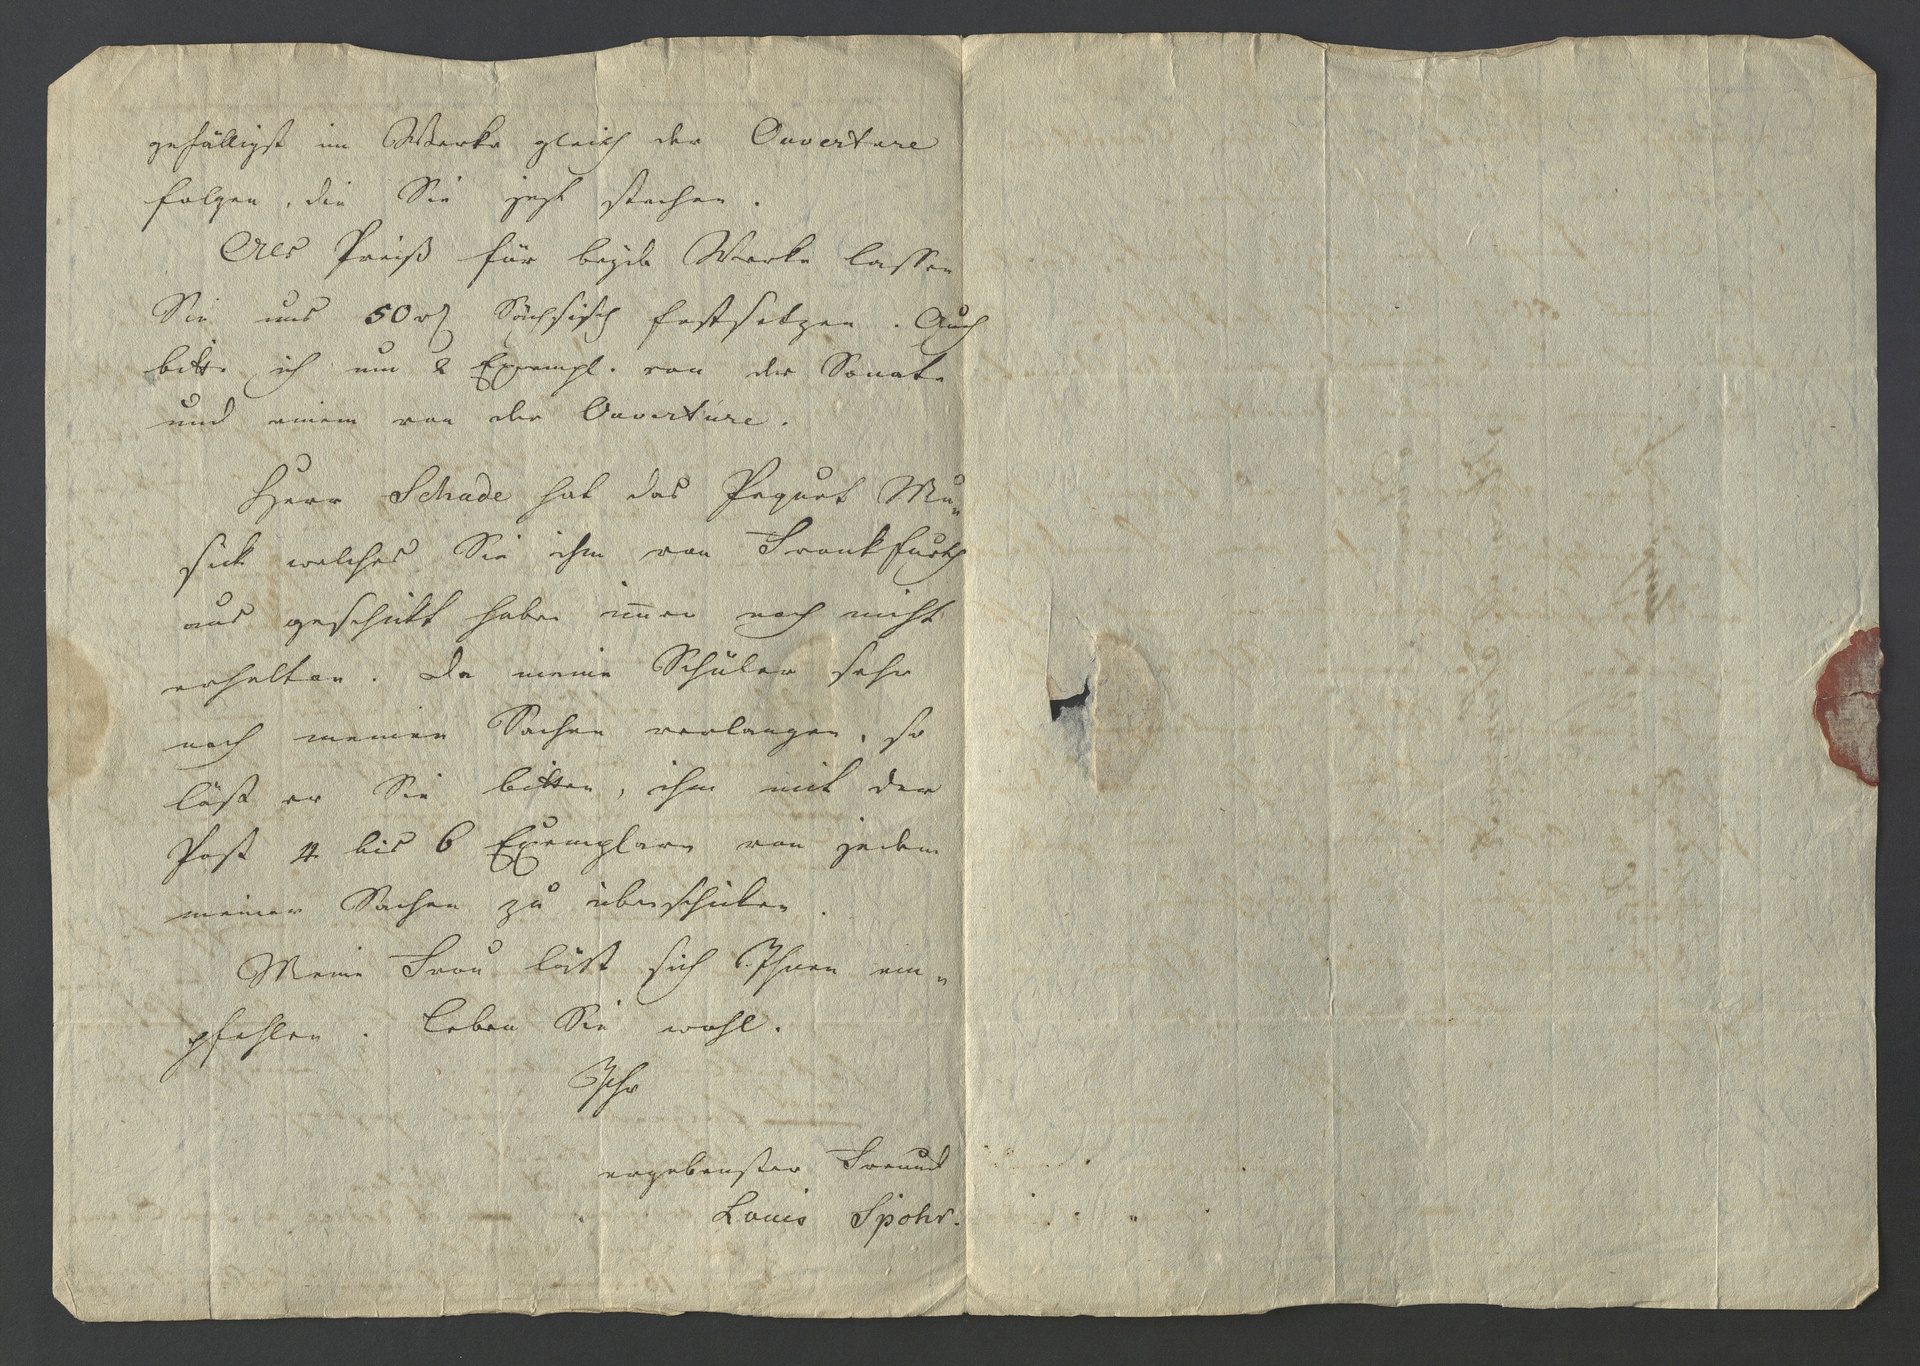 gefälligst im Werke gleich der Ouverture
folgen, die Sie jezt stachen.
Als Preiß für beyde Werke lassen
Sie uns 50 rh Sächsisch festsetzen. Auch
bitte ich um 2 Exempl. von der Sonate
und einem von der Ouverture.
Herr Schade hat das Pequet Mu-
sick welches Sie ihm von Frankfurth
aus geschickt haben imer noch nicht
erhalten. Da meine Schüler sehr
nach meinen Sachen verlangen, so
läßt er Sie bitten, ihm mit der
Post 4 bis 6 Exemplare von jedem
meiner Sachen zu überschicken.
Meine Frau läßt sich Ihnen em-
pfehlen. Leben Sie wohl.
Ihr
ergebenster Freund
Louis Spohr.